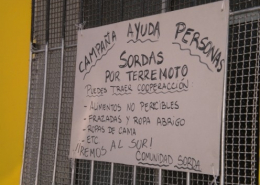 CAMPAÑA AYUDA PERSONAS
SORDAS
POR TERREMOTO
PUEDES TRAER COOPERACCIÓN
- ALIMENTOS NO PERCIBLES
- FRAZADAS Y ROPA ABRIGO
- ROPAS DE CAMA
- ETC
¡IREMOS AL SUR!
COMUNIDAD SORDA